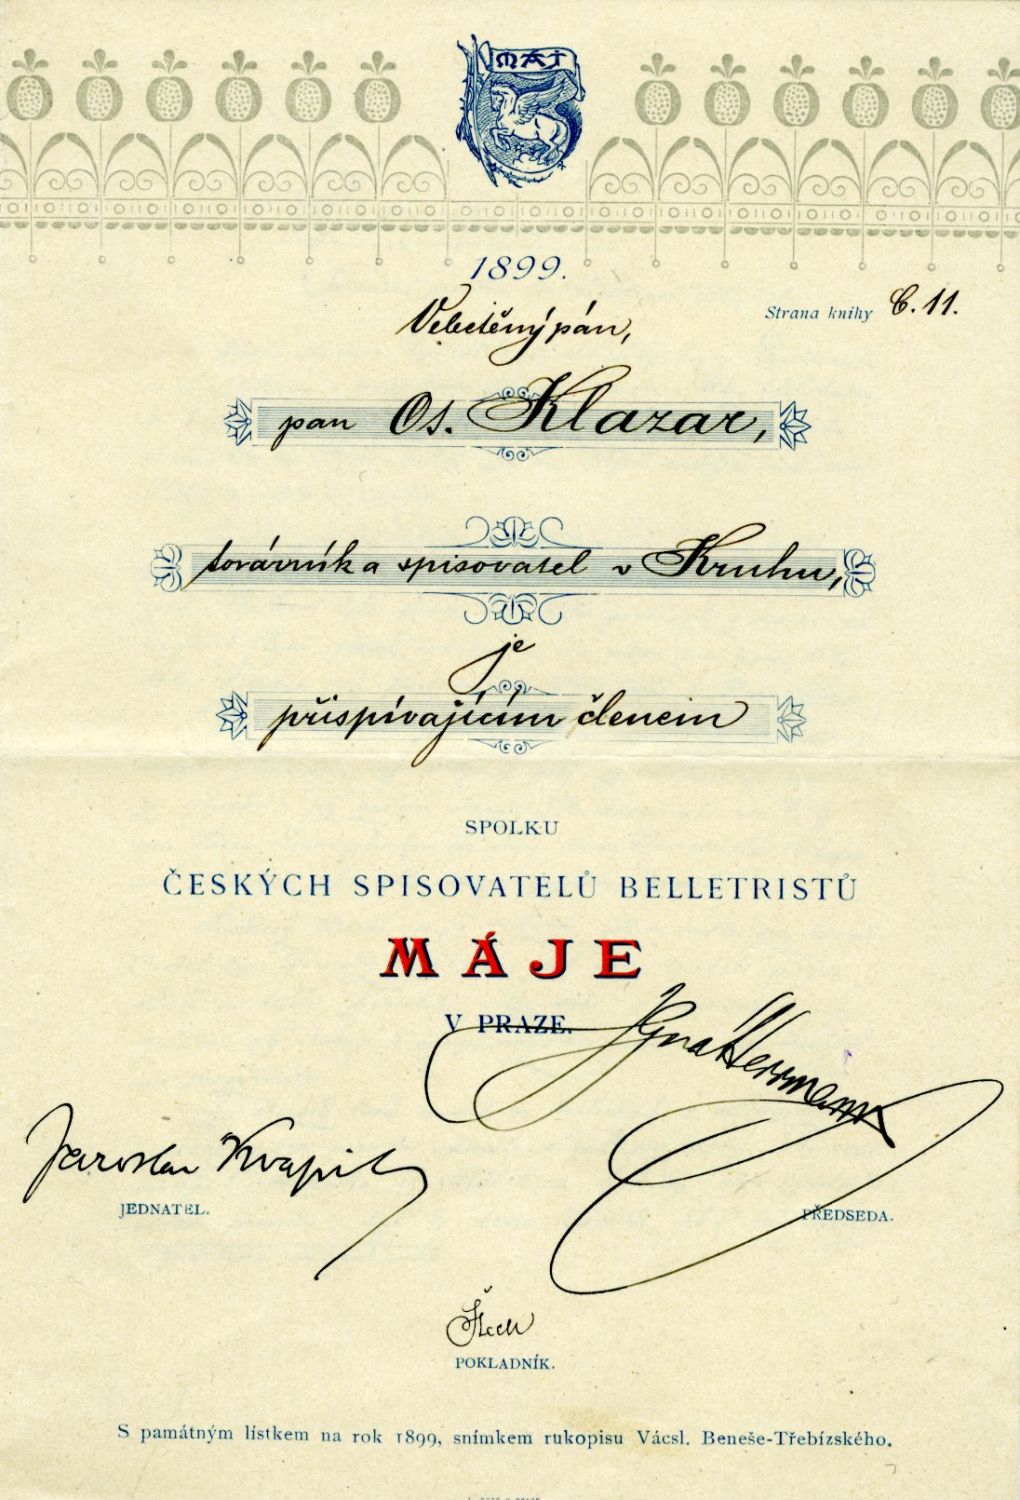 MÁJ
1899.
Strana knihy C. 11.
Velectěný pán,
pan Os. Klazar,
továrník a spisovatel v Kruhu,
je
přispívajícím členem
SPOLKU
ČESKÝCH SPISOVATELŮ BELLETRISTŮ
MÁJE
V PRAZE.
Ignát Herrmann
Jaroslav Kvapil
JEDNATEL.
PŘEDSEDA.
POKLADNÍK.
S památným lístkem na rok 1899, snímkem rukopisu Vácsl. Beneše-Třebízského.